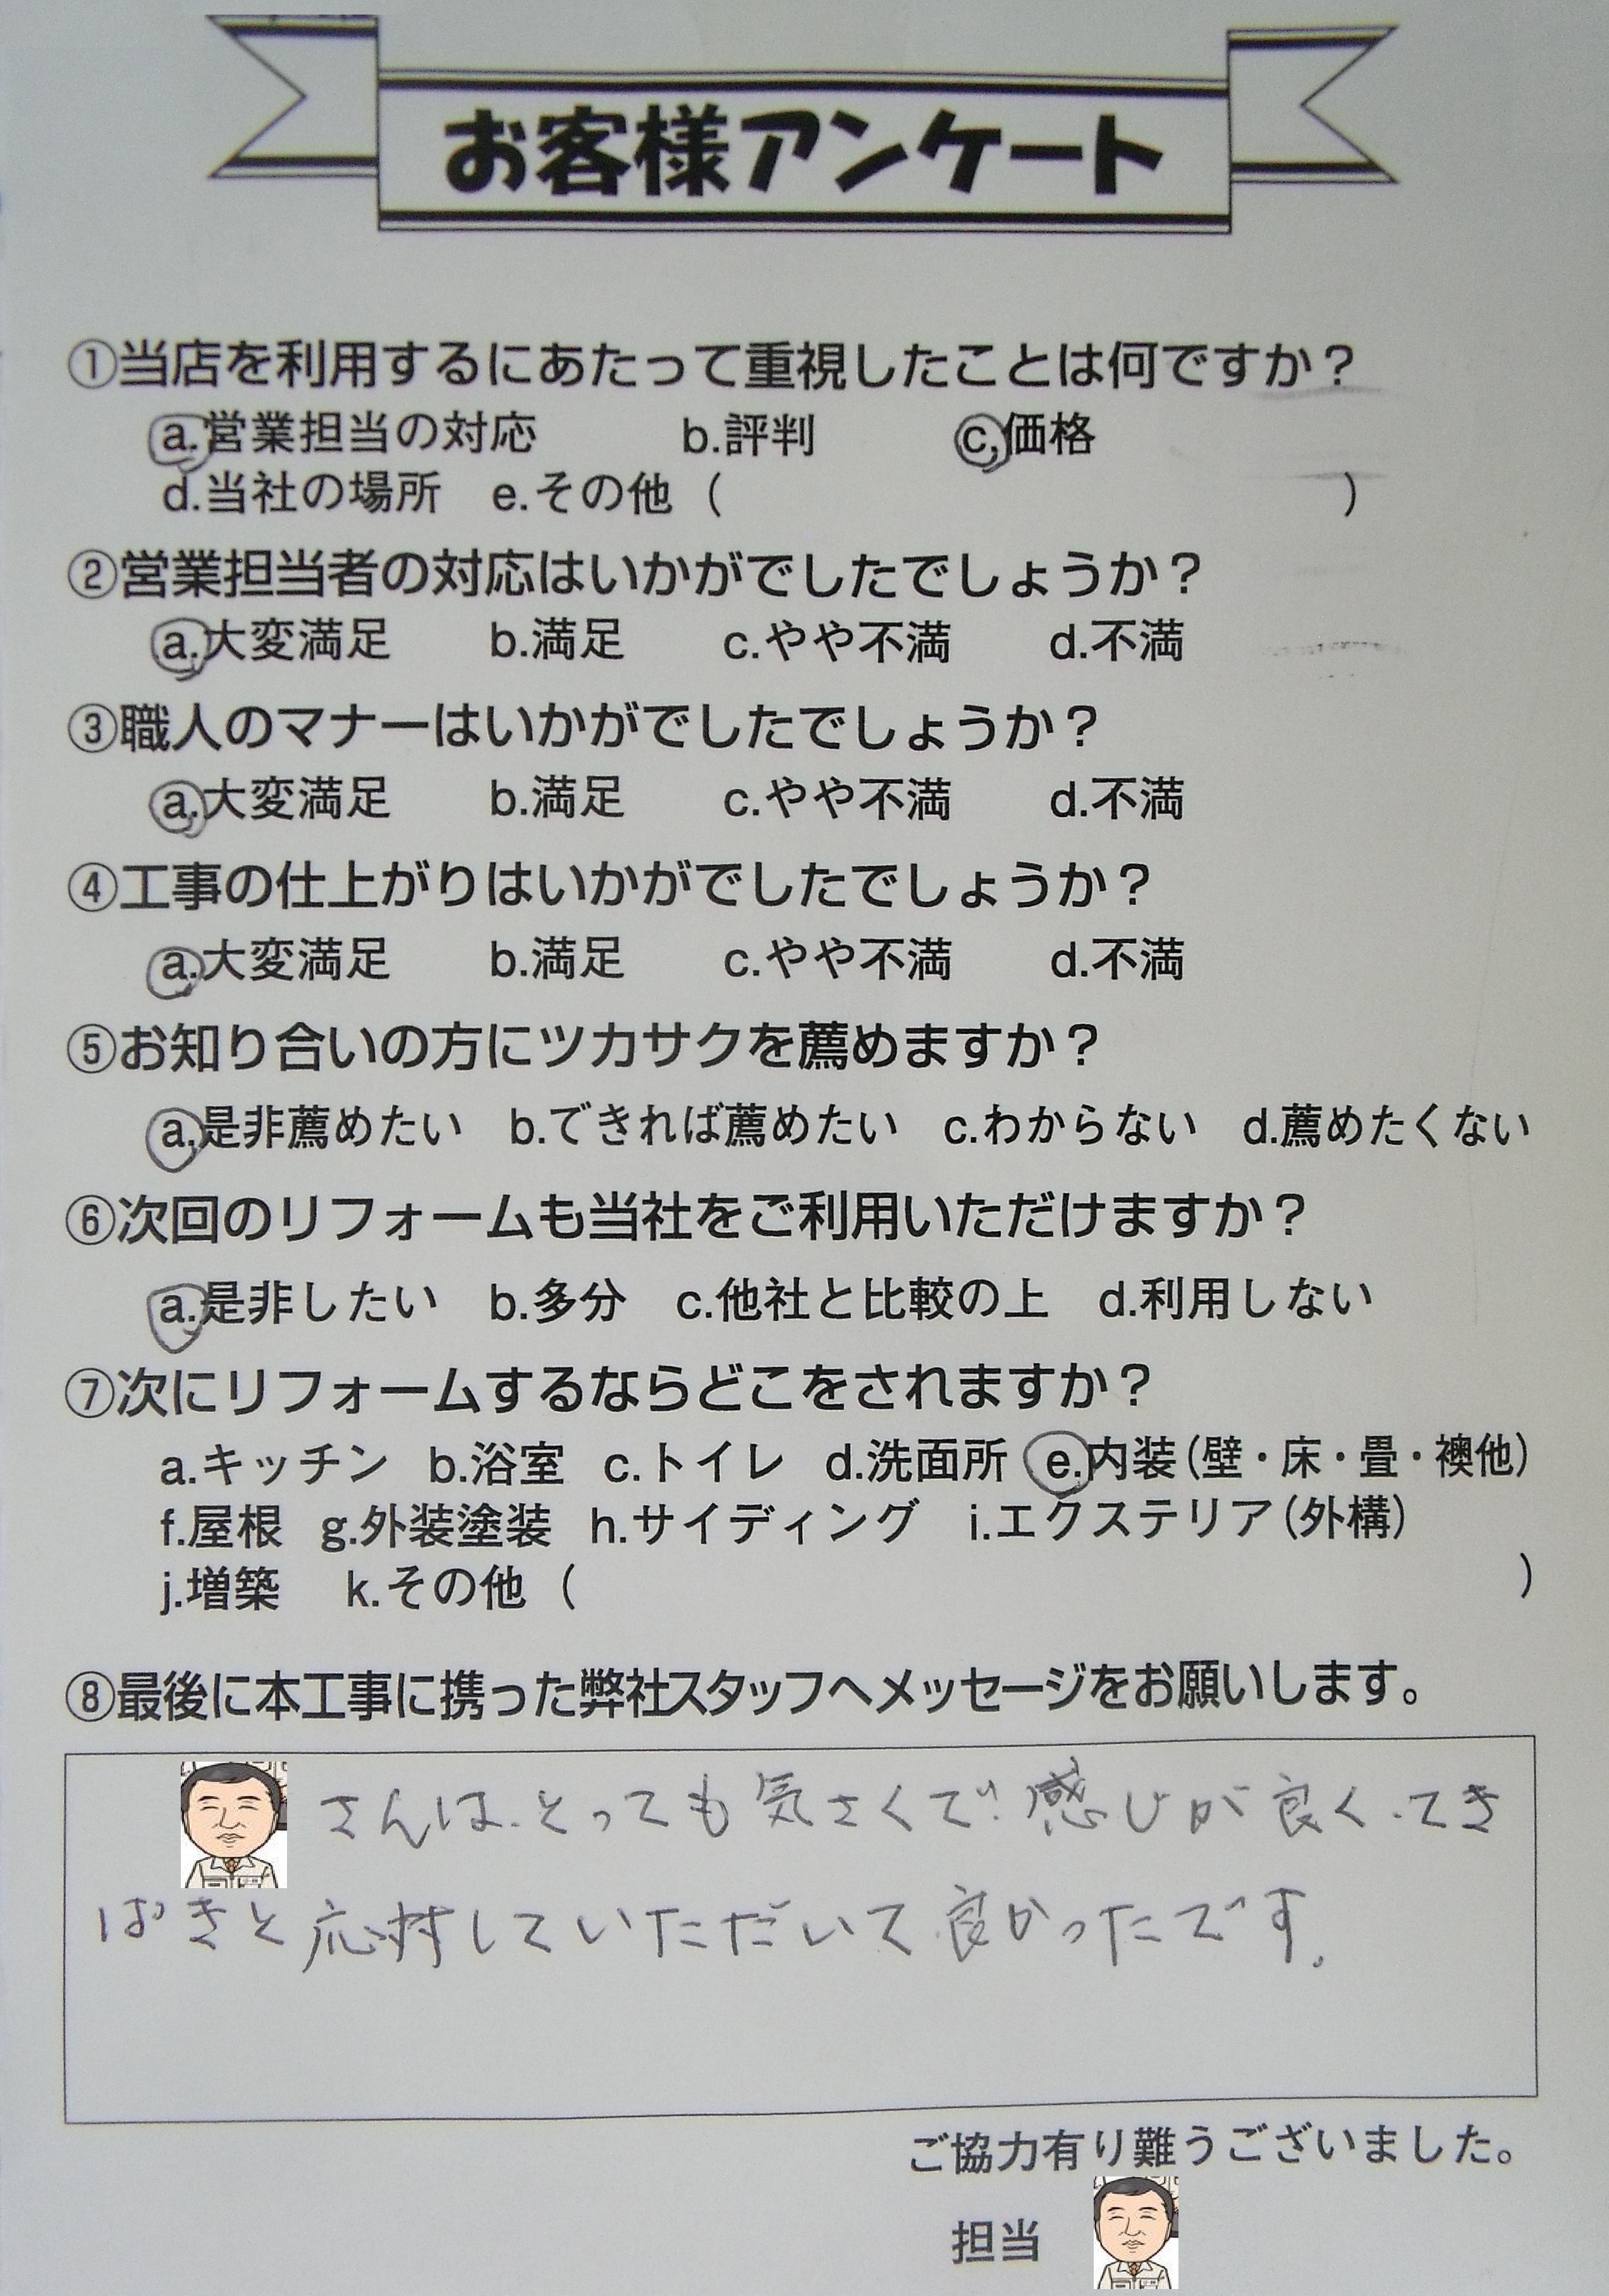 お客様アンケート
①当店を利用するにあたって重視したことは何ですか？
a.営業担当の対応 b.評判 c.価格
d.当社の場所 e.その他（ ）
②営業担当者の対応はいかがでしたでしょうか？
a.大変満足 b.満足 c.やや不満 d.不満
③職人のマナーはいかがでしたでしょうか？
a.大変満足 b.満足 c.やや不満 d.不満
④工事の仕上がりはいかがでしたでしょうか？
a.大変満足 b.満足 c.やや不満 d.不満
⑤お知り合いの方にツカサクを薦めますか？
a.是非薦めたい b.できれば薦めたい c.わからない d.薦めたくない
⑥次回のリフォームも当社をご利用いただけますか？
a.是非したい b.多分 c.他社と比較の上 d.利用しない
⑦次にリフォームするならどこをされますか？
a.キッチン b.浴室 c.トイレ d.洗面所 e.内装（壁・床・畳・襖他）
f.屋根 g.外装塗装 h.サイディング i.エクステリア（外構）
j.増築 k.その他（ ）
⑧最後に本工事に携った弊社スタッフへメッセージをお願いします。
さんは、とっても気さくで、感じが良く、てき
ぱきと応対していただいて良かったです。
ご協力有り難うございました。
担当